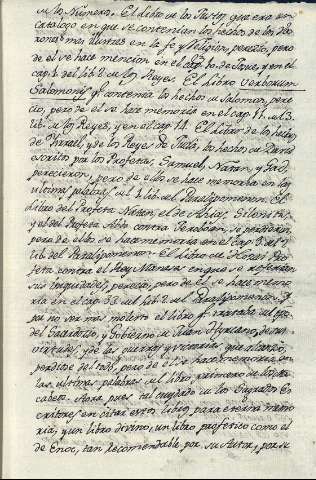 de los Números. El libro de los Justos, que era un
Catalogo en que se contenian los hechos de los Va-
rones mas ilustres en la fe y Religion, pereció, pero
de el se hace mencion en el cap. 10. de Josue, y en el
cap. 1. del lib. 2. de los Reyes. El Libro Verborum
Salomonis q.e contenia los hechos de Salomon, pere-
ció, pero de el se hace memoria en el cap. 11. del 3.
lib. de los Reyes, y en el cap. 14. El libro de los hechos
de Israel, y de los Reyes de Juda, los hechos de David
escritos por los Profetas, Samuel, Natan, y Gad,
perecieron, pero de ellos se hace memoria en las
ultimas palabras del 1. lib. del Paralipomenon. El
Libro del Profeta Natan, el de Ahias Silonita,
y el del Profeta Addo contra Jeroboan, se perdieron
pero de ellos se hace memoria en el cap. 9. del 2.
lib. del Paralipomenon. El Libro de Hozai Pro-
feta contra el Rey Manases en que se referian
sus iniquidades, pereció, pero de el se hace memo-
ria en el cap. 33. del lib. 2. del Paralipomenon. Y
pa no ser mas molesto el libro q.e trataba del
del Sacerdocio, y Govierno de Juan Hyrcano, de sus
virtudes, y de las guerras y victorias, que alcanzó,
perdiose del todo, pero de el se hace memoria en
las ultimas palabras del libro primero de los Ma-
cabeos. Ahora pues tal cuydado de los Sagrados Es-
critores en citar estos libros para eterna memo-
ria; y un libro divino, un libro profetico como el
de Enoc, tan recomendable por su Autor, por su